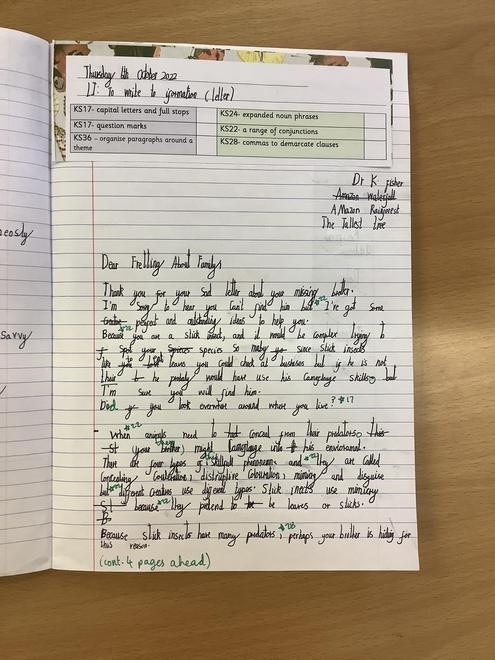 eosly
savvy
Thursday 6th October 2022
LI: To write to formative (letter)
KS17- capital letters and full stops
KS17- question marks
KS36 – organise paragraphs around a theme
KS24- expanded noun phrases
KS22- a range of conjunctions
KS28- commas to demarcate clauses
Dr K. Fisher
Amazon Waterfall
AMazon Rainforest
The Tallest tree
Dear Fretting About Family,
Thank you for your sad letter about your missing brother.
I'm sorry to hear you can't find him but #22 I've got some
#22 perfect and outstanding ideas to help you.
Because you are a stick insect, and it would be complex trying to
spot your species so since stick insects
like to leaves you could check at bushes but if he is not
he would have use his camouflage skills, but
I'm sure you will find him.
Did you look everwhere around where you live? #17
#22
- When animals need to conceal from their predators
your brother, might camouflage into his enviroment.
There are four types of this phenomenon, and #22 they are called
concealing colouration, disruptive colouration, mimicry and disguise
but #22 different creatures use different types. Stick insects use mimicry
because #22 they pretend to be leaves or sticks.
Because stick insects have many predators, #28 perhaps your brother is hiding for
this reason.
(cont. 4 pages ahead)